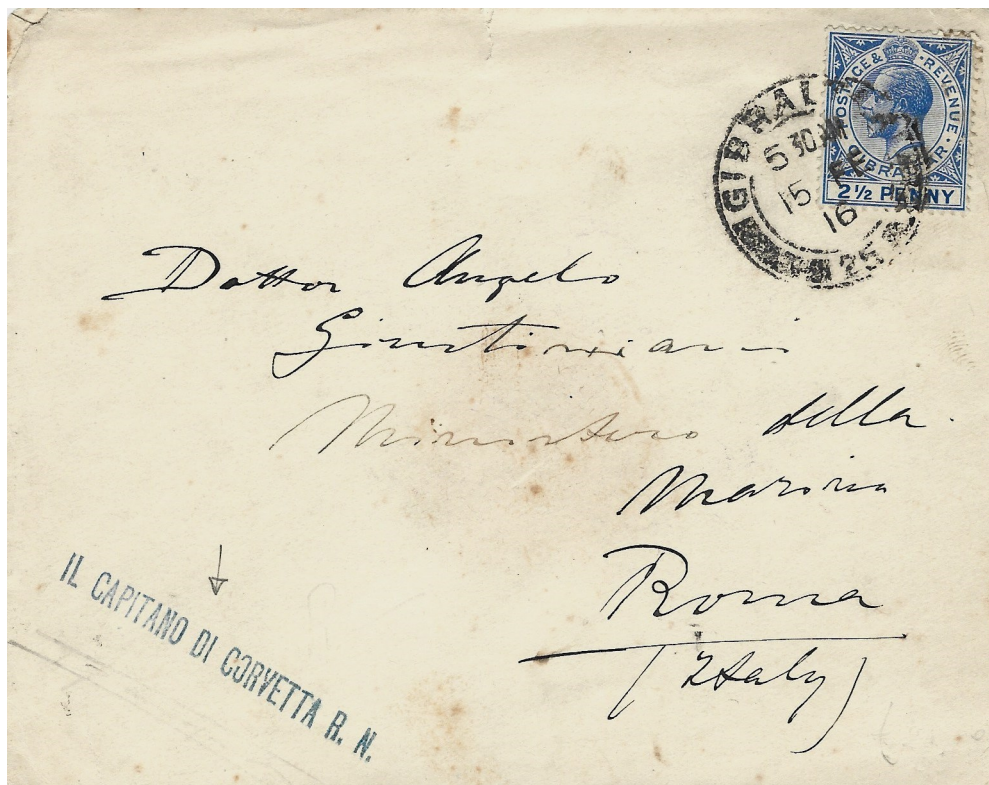 POSTAGE & REVENUE
GIBRALTAR
2½ PENNY
GIBRALT
5 30 AM
15 FE
16
25
Dottor Angelo
Giustiniani
Ministero della
Marina
Roma
(Italy)
IL CAPITANO DI CORVETTA R. N.